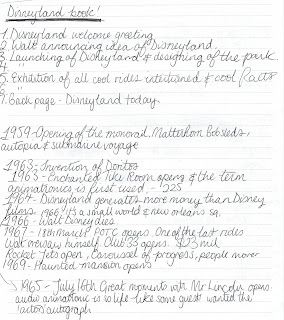 Disneyland book!
1. Disneyland welcome greeting
2. Walt announcing idea of Disneyland.
3. Launching of Disneyland & designing of the park.
4. "
5. Exhibition of all cool rides intertwined & cool facts
6. "
7. Back page - Disneyland today.
1959 - Opening of the monorail. Matterhorn Bobsleds,
autopia & submarine voyage
1963 - Invention of Doritos
1963 - Enchanted Tiki Room opens & the term
animatronics is first used. -
1964 - Disneyland generates more money than Disney
films. 1966 it's a small world & new orleans sq.
1966 - Walt Disney dies.
1967 - 18th March POTC opens. One of the last rides
Walt oversaw himself. Club 33 opens. $23 mil
Rocket jets open, Carousel of progress, people mover
1969 - Haunted mansion opens
1965 - July 18th Great moments with Mr Lincoln opens
audio animatronic is so life-like some guest wanted the
'actors' autograph